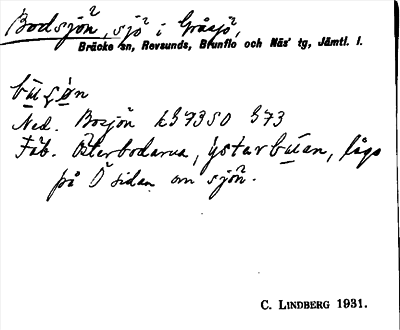 Bodsjön, sjö i Gråsjö,
Bräcke sn, Revsunds, Brunflo och Näs' tg, Jämtl. l.
Ned. Bosjön
Fäb. Österbodarna, ystarbúan, låga
på Ö sidan om sjön.
C. LINDBERG 1931.